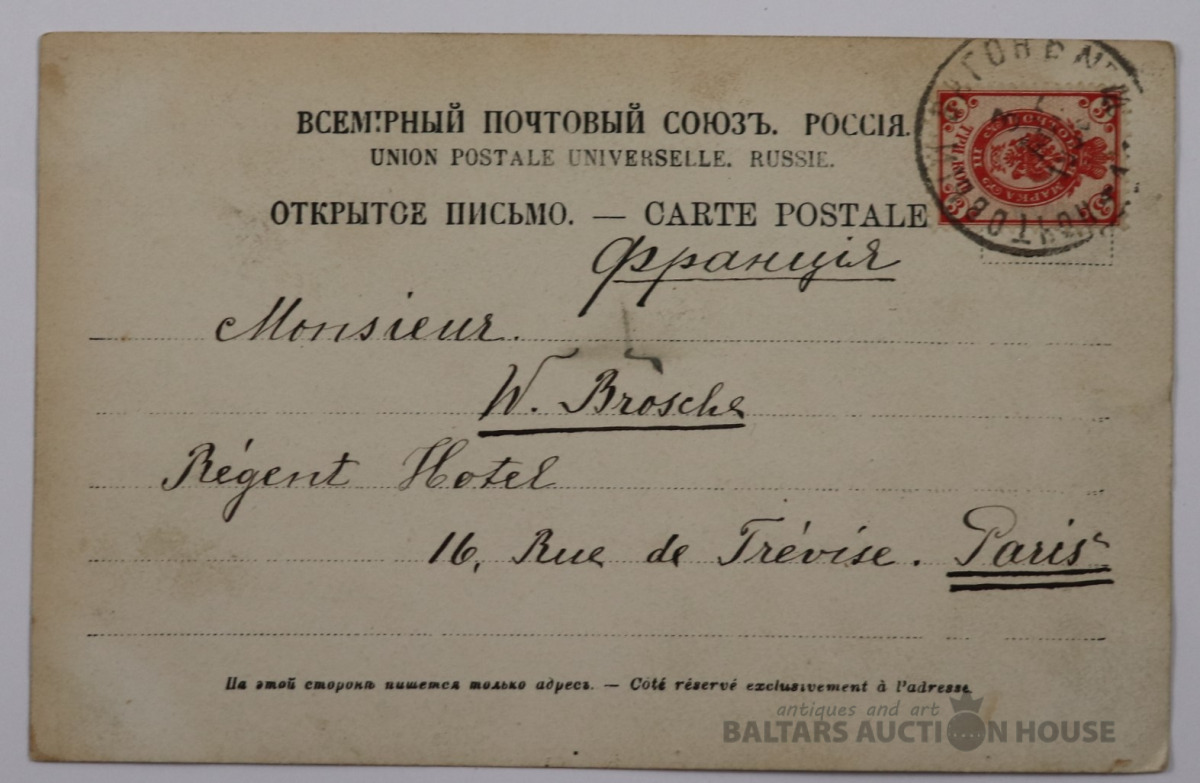 ВСЕМІРНЫЙ ПОЧТОВЫЙ СОЮЗЪ. РОССІЯ.
UNION POSTALE UNIVERSELLE. RUSSIE.
ОТКРЫТОЕ ПИСЬМО. — CARTE POSTALE
3 3
ТРИ КОП.
ПОЧТОВ ВАГОНЪ №
Франція
Monsieur.
W. Brosche
Régent Hotel
16, Rue de Trévise. Paris
На этой сторонѣ пишется только адресъ. — Côté réservé exclusivement à l'adresse.
antiques and art
BALTARS AUCTION HOUSE